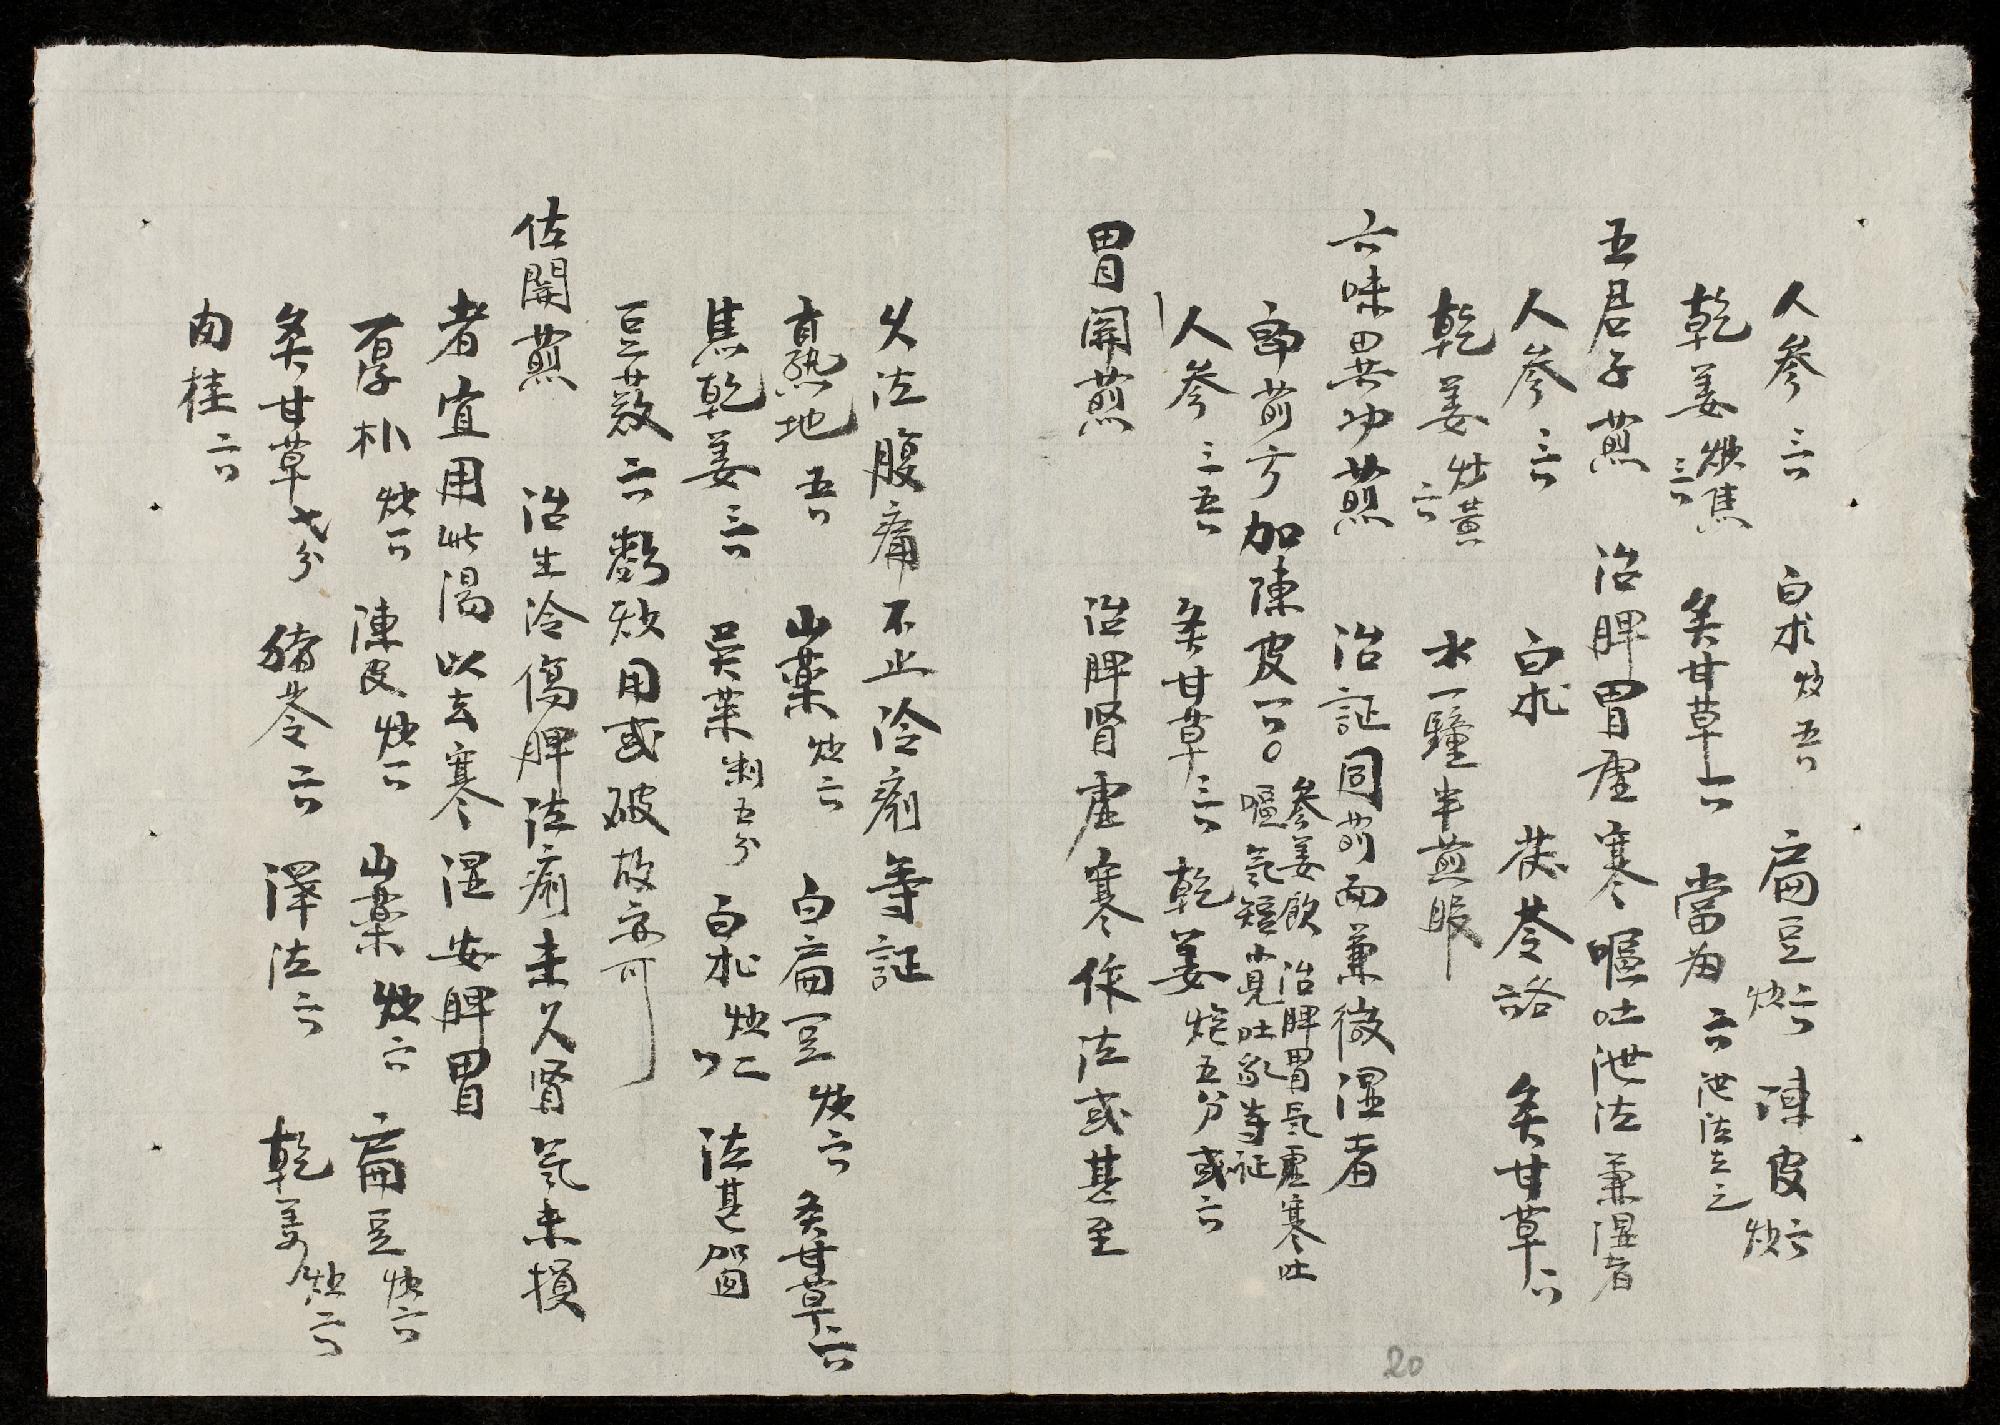 人參三 白术炒五 扁豆炒二 陳皮炒二
乾姜炮焦三 炙甘草一 當歸二 泄泻去之
五君子煎 治脾胃虛寒嘔吐泄泻兼湿者
人參三 白术 茯苓 炙甘草一
乾姜炒黄二 水一鐘半煎服
六味異功煎 治証同前而兼微湿者
即前方加陳皮一〇參姜飲 治脾胃氣虛寒吐
嘔氣短小児吐乳等証
人參三五 炙甘草三 乾姜炮五分或二
胃関煎 治脾腎虛寒作泻或甚至
久泻腹痛不止冷痢等証
熟地五 山藥炒二 白扁豆炒二 炙甘草二
焦乾姜三 吳茱制五分 白术炒 泻甚
豆蔻二 炒用或破故亦可
佐関煎 治生冷傷脾泻痢未久腎氣未損
者宜用此湯以去寒湿安脾胃
厚朴炒一 陳皮炒一 山藥炒二 扁豆炒二
炙甘草七分 猪苓二 澤泻二 乾姜炒二
肉桂二
20